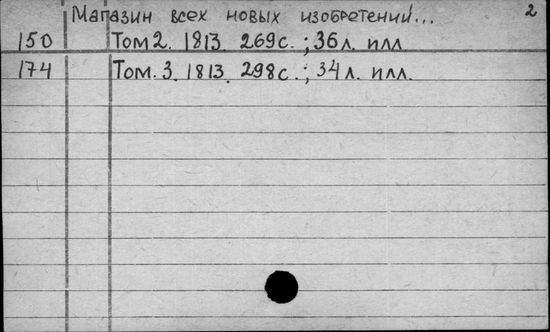 Магазин всех новых изобретений... 2
150 Том 2. 1813. 269с.; 36л. илл
174 Том. 3. 1813. 298с.; 34л. илл.